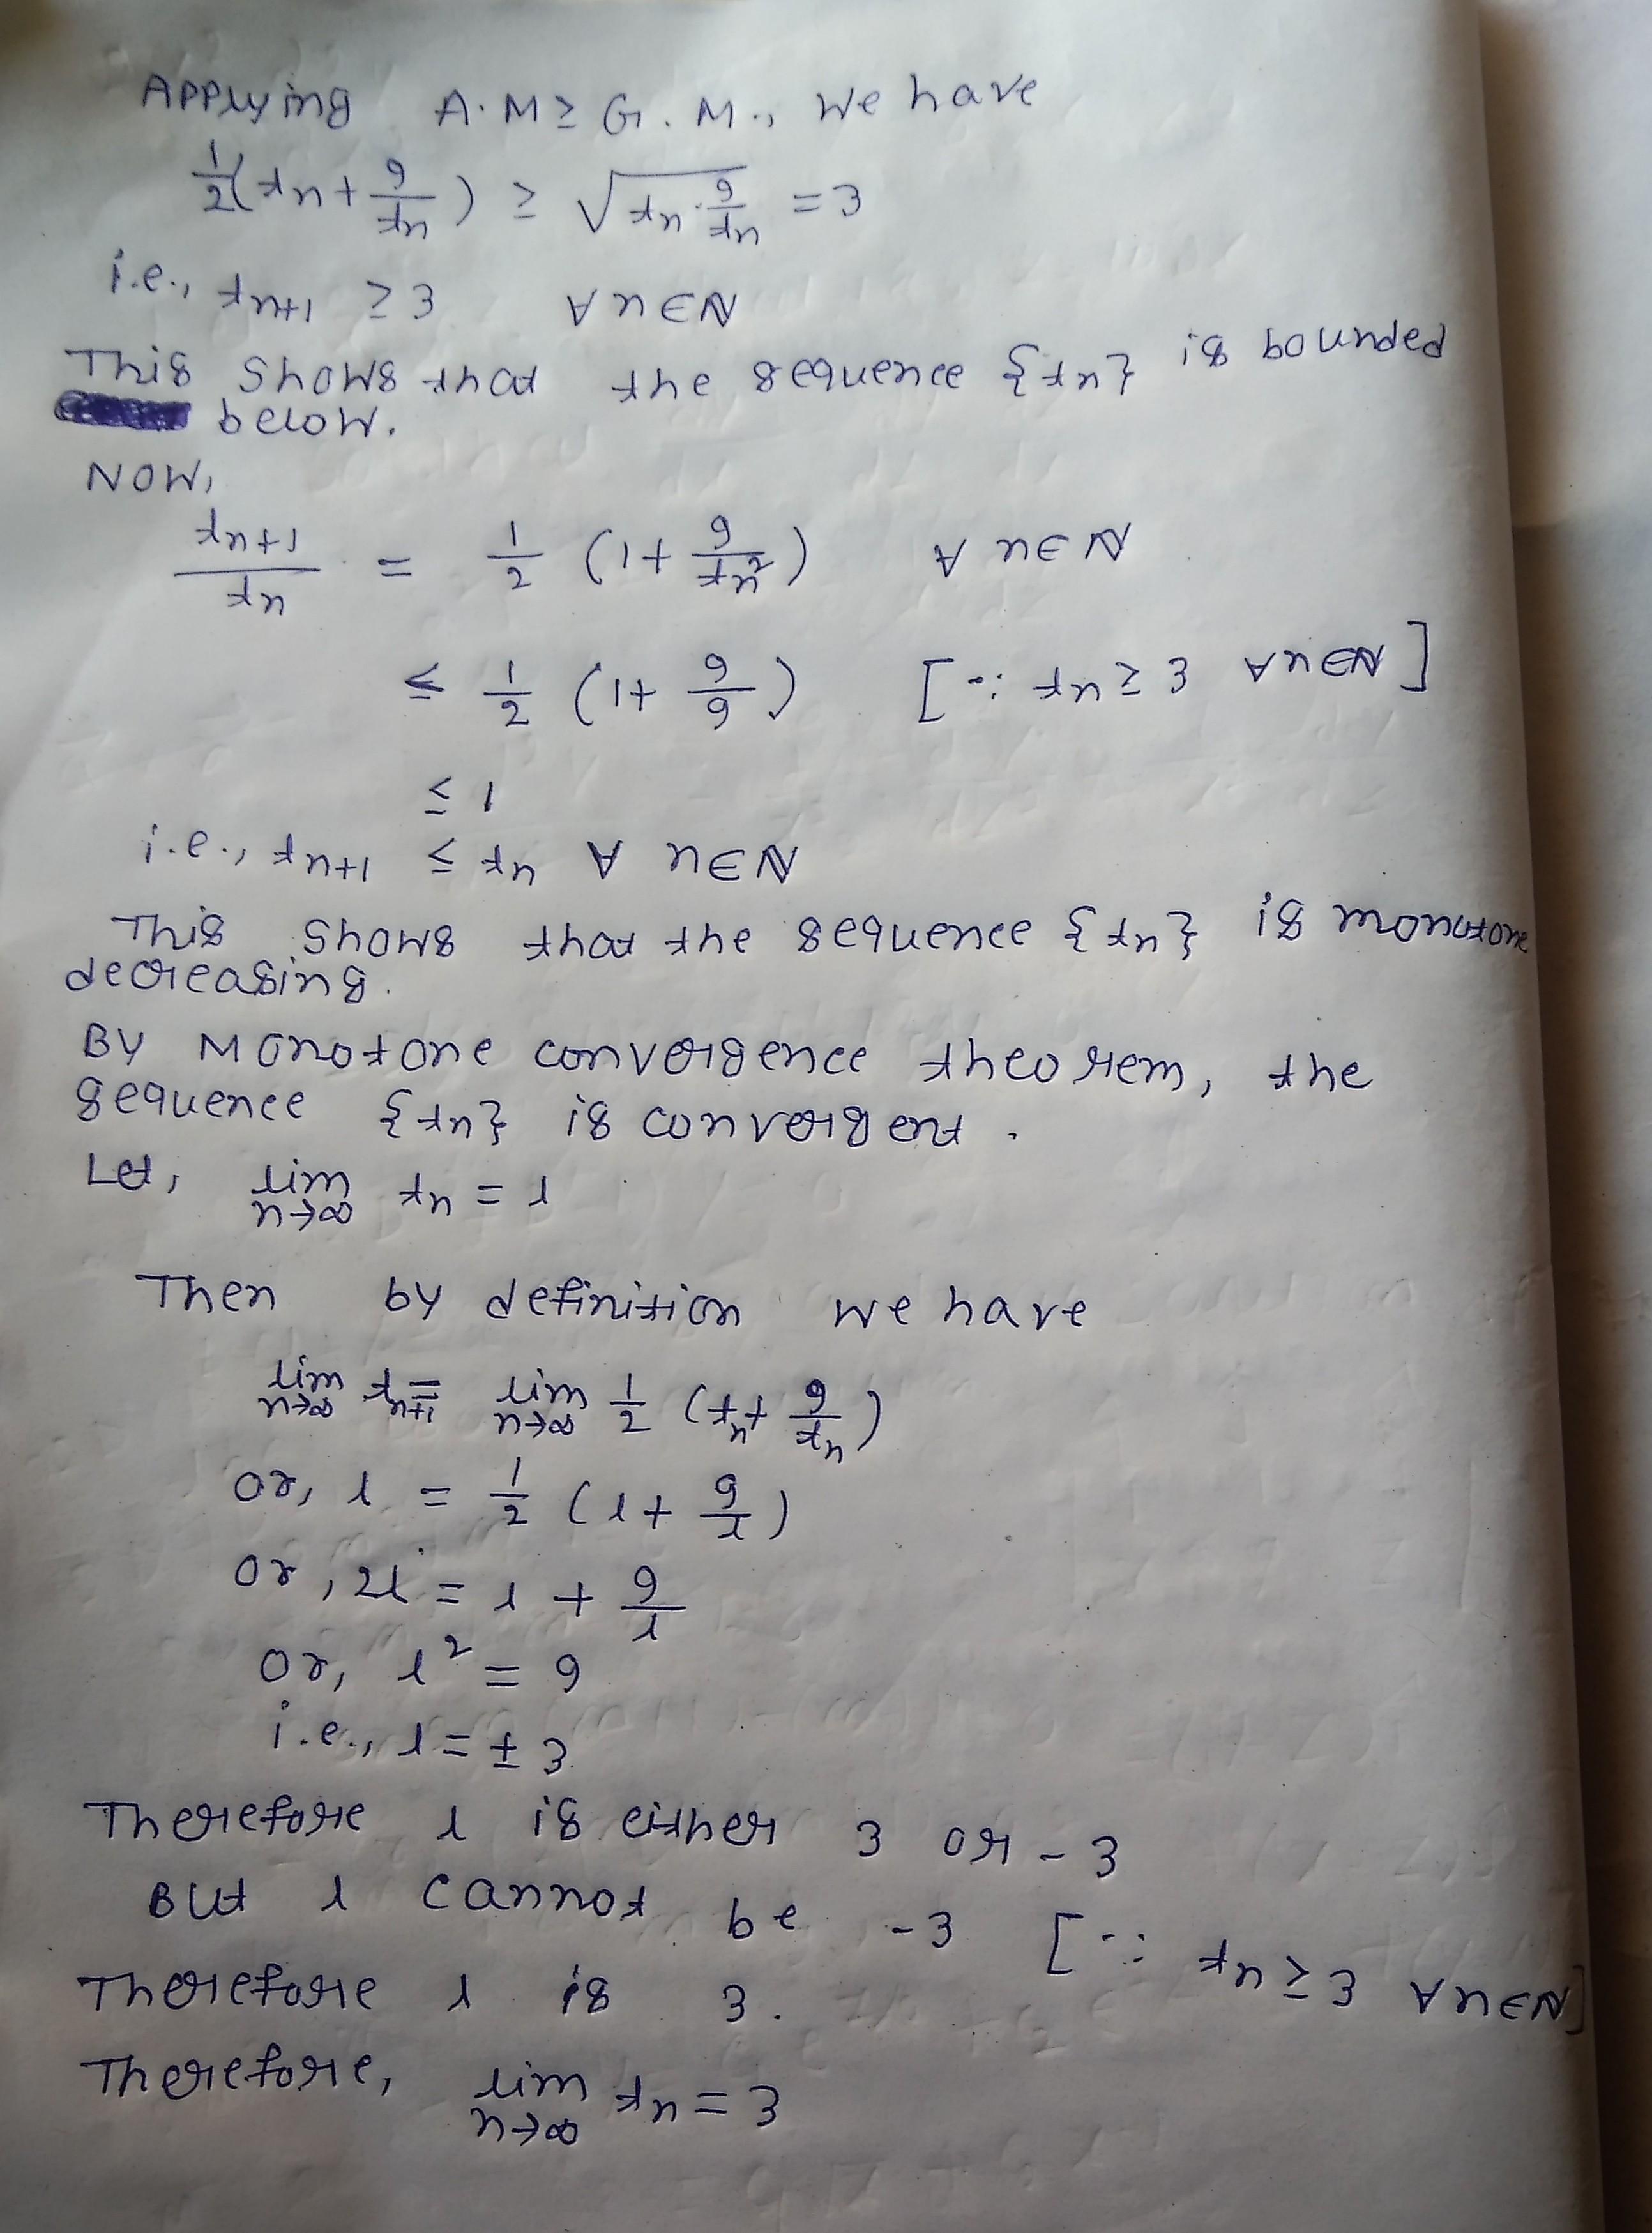 Applying A.M ≥ G.M., we have
1/2(tn + 9/tn) ≥ √(tn · 9/tn) = 3
i.e., tn+1 ≥ 3 ∀ n∈N
This shows that the sequence {tn} is bounded
below.
Now,
tn+1/tn = 1/2 (1 + 9/tn²) ∀ n∈N
≤ 1/2 (1 + 9/9) [∵ tn ≥ 3 ∀n∈N]
≤ 1
i.e., tn+1 ≤ tn ∀ n∈N
This shows that the sequence {tn} is monotone
decreasing.
By Monotone convergence theorem, the
sequence {tn} is convergent.
Let, lim n→∞ tn = l
Then by definition we have
lim n→∞ tn+1 = lim n→∞ 1/2 (tn + 9/tn)
or, l = 1/2 (l + 9/l)
or, 2l = l + 9/l
or, l² = 9
i.e., l = ± 3
Therefore l is either 3 or -3
But l cannot be -3 [∵ tn ≥ 3 ∀n∈N]
Therefore l is 3.
Therefore, lim n→∞ tn = 3